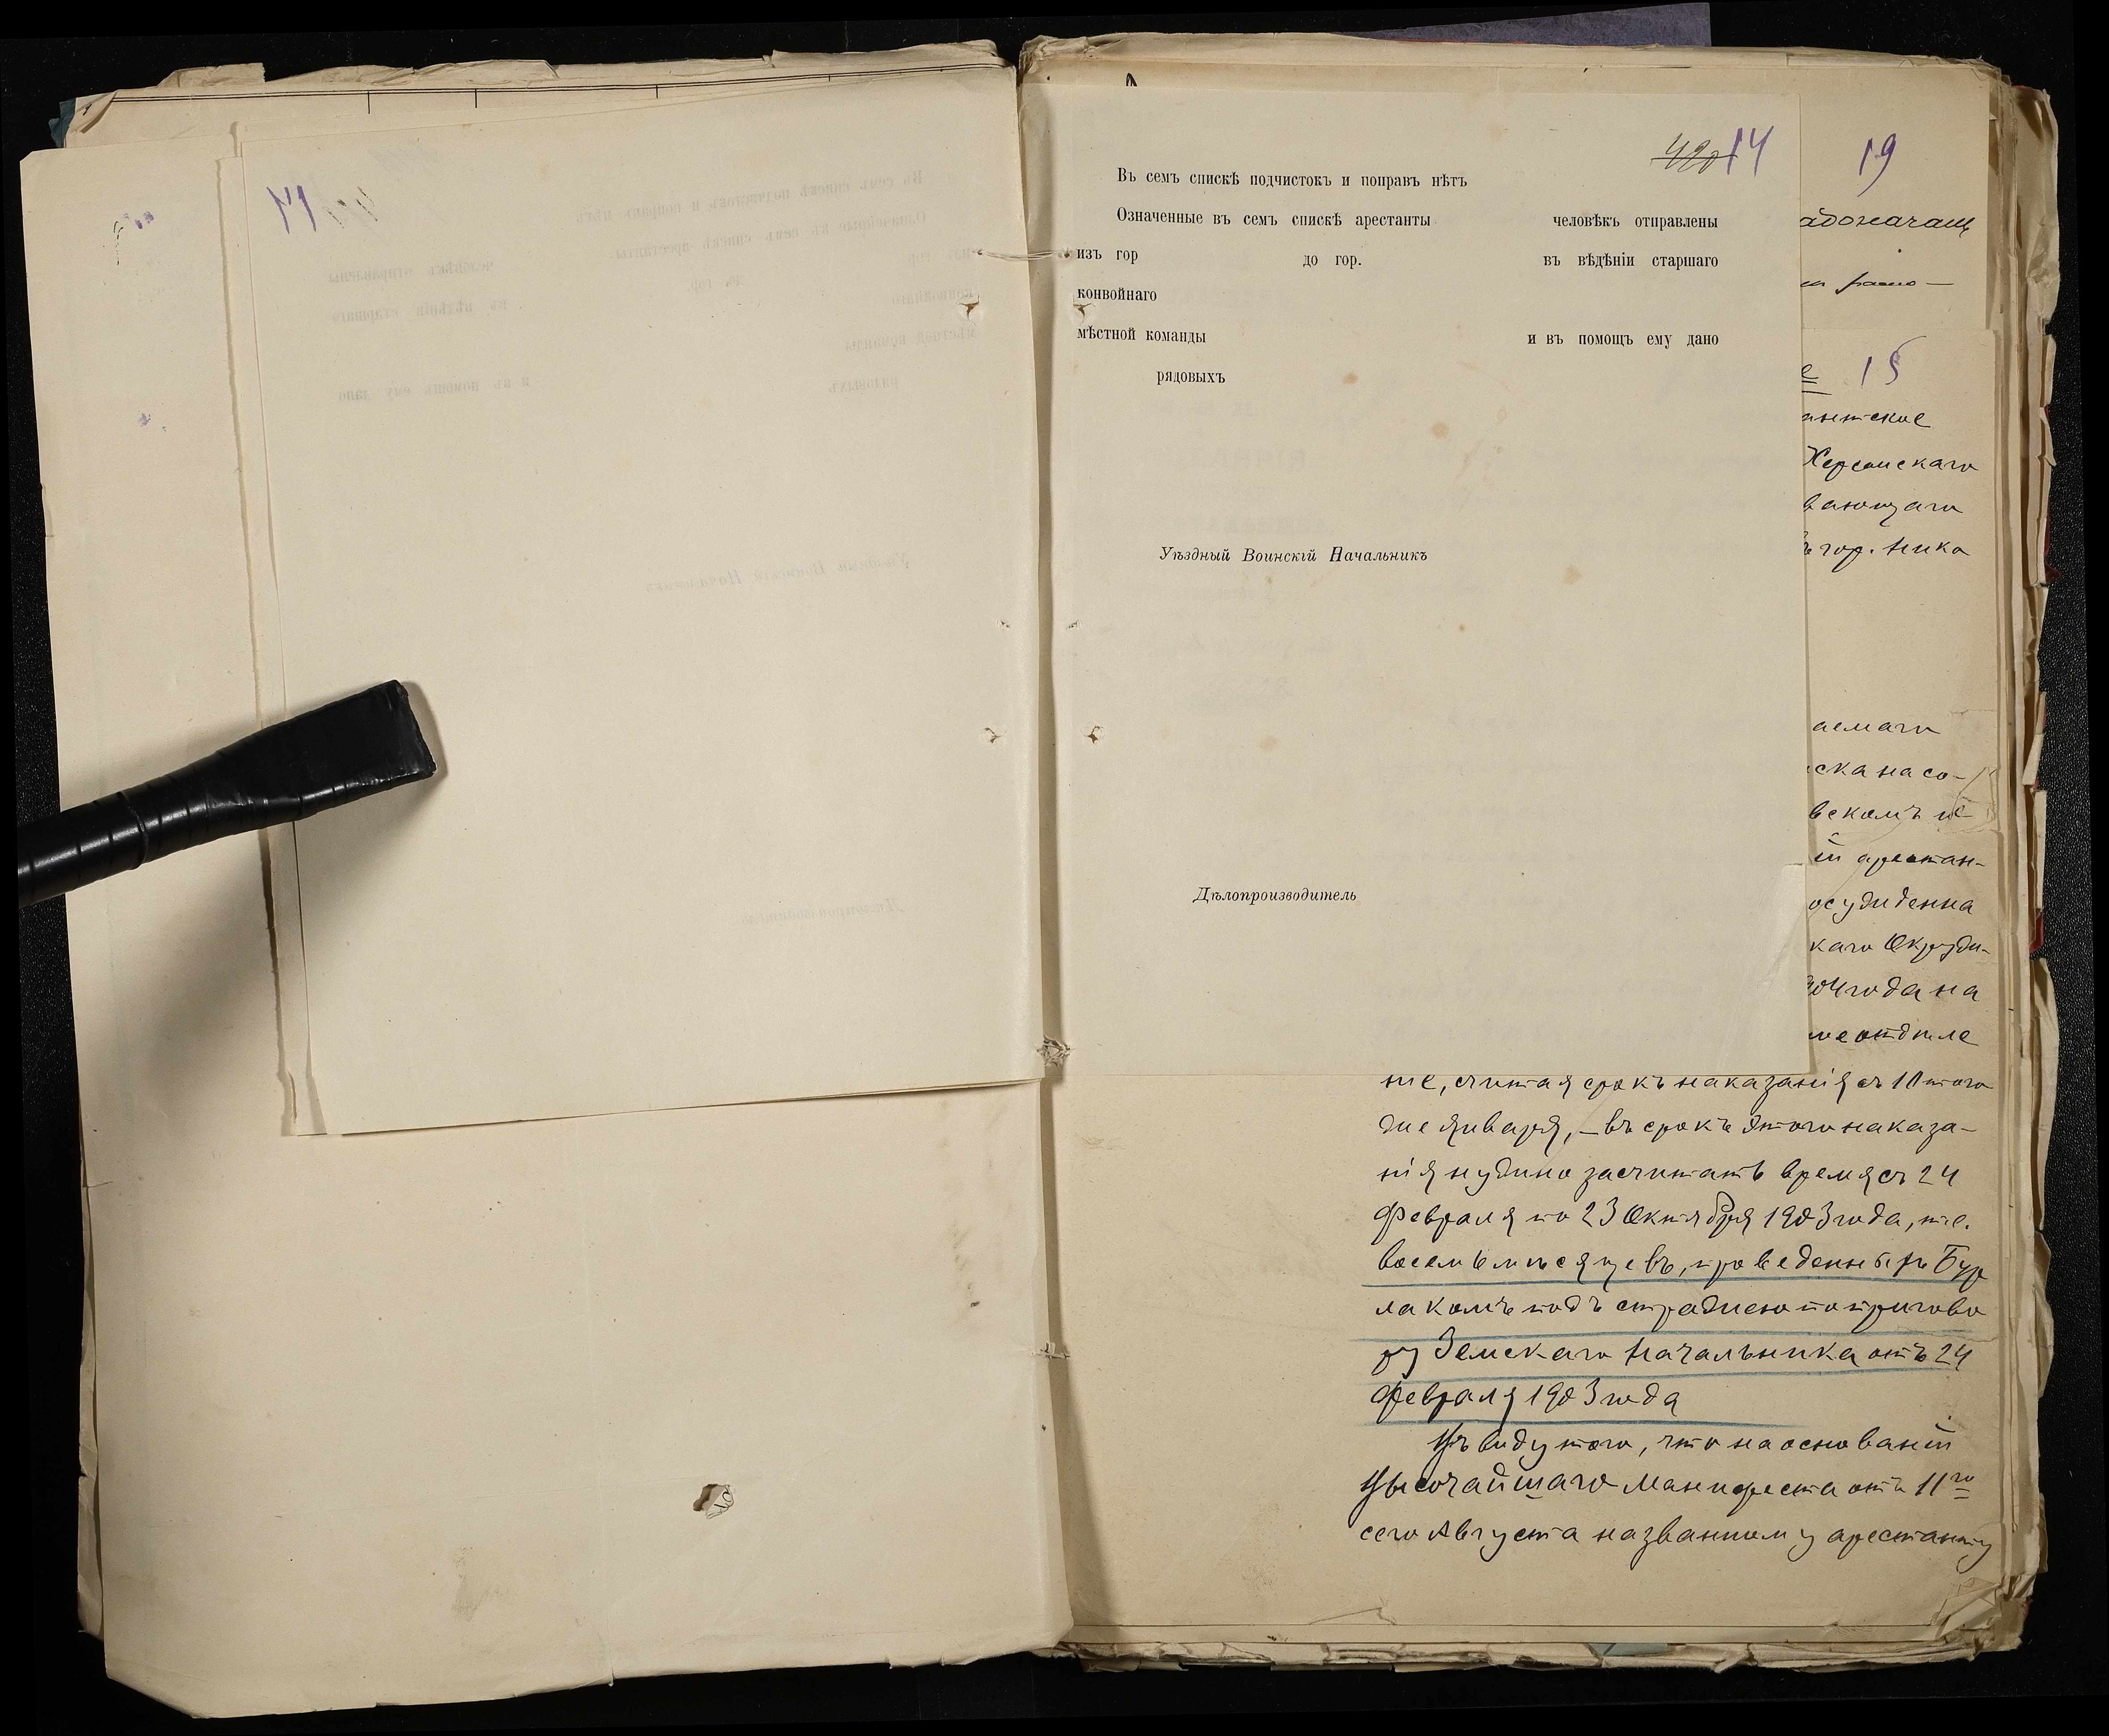 42014
Въ семъ спискѣ подчистокъ и поправъ нѣтъ
Означенные въ семъ спискѣ арестанты человѣкъ отправлены
изъ гор до гор. въ вѣдѣніи старшаго
конвойнаго
мѣстной команды и въ помощь ему дано
рядовыхъ
Уѣздный Воинскій Начальникъ
Дѣлопроизводитель
19
15
антское
Херсонскаго
вающаго
гор. Нико
аемаго
ска на со-
вскомъ
ій арестан-
осужденна
каго Окруж-
года на
ніе, считая срокъ наказанія съ 10 того
же Января, – въ срокъ этого наказа-
нія нужно засчитать время съ 24
Февраля по 23 Октября 1903 года, т.е.
восемь мѣсяцевъ, проведенныхъ Бур
лакомъ подъ стражею по пригово
ру Земскаго Начальника отъ 24
Февраля 1903 года
Въ виду того, что на основаніи
Высочайшаго Манифеста отъ 11го
сего Августа названному арестанту